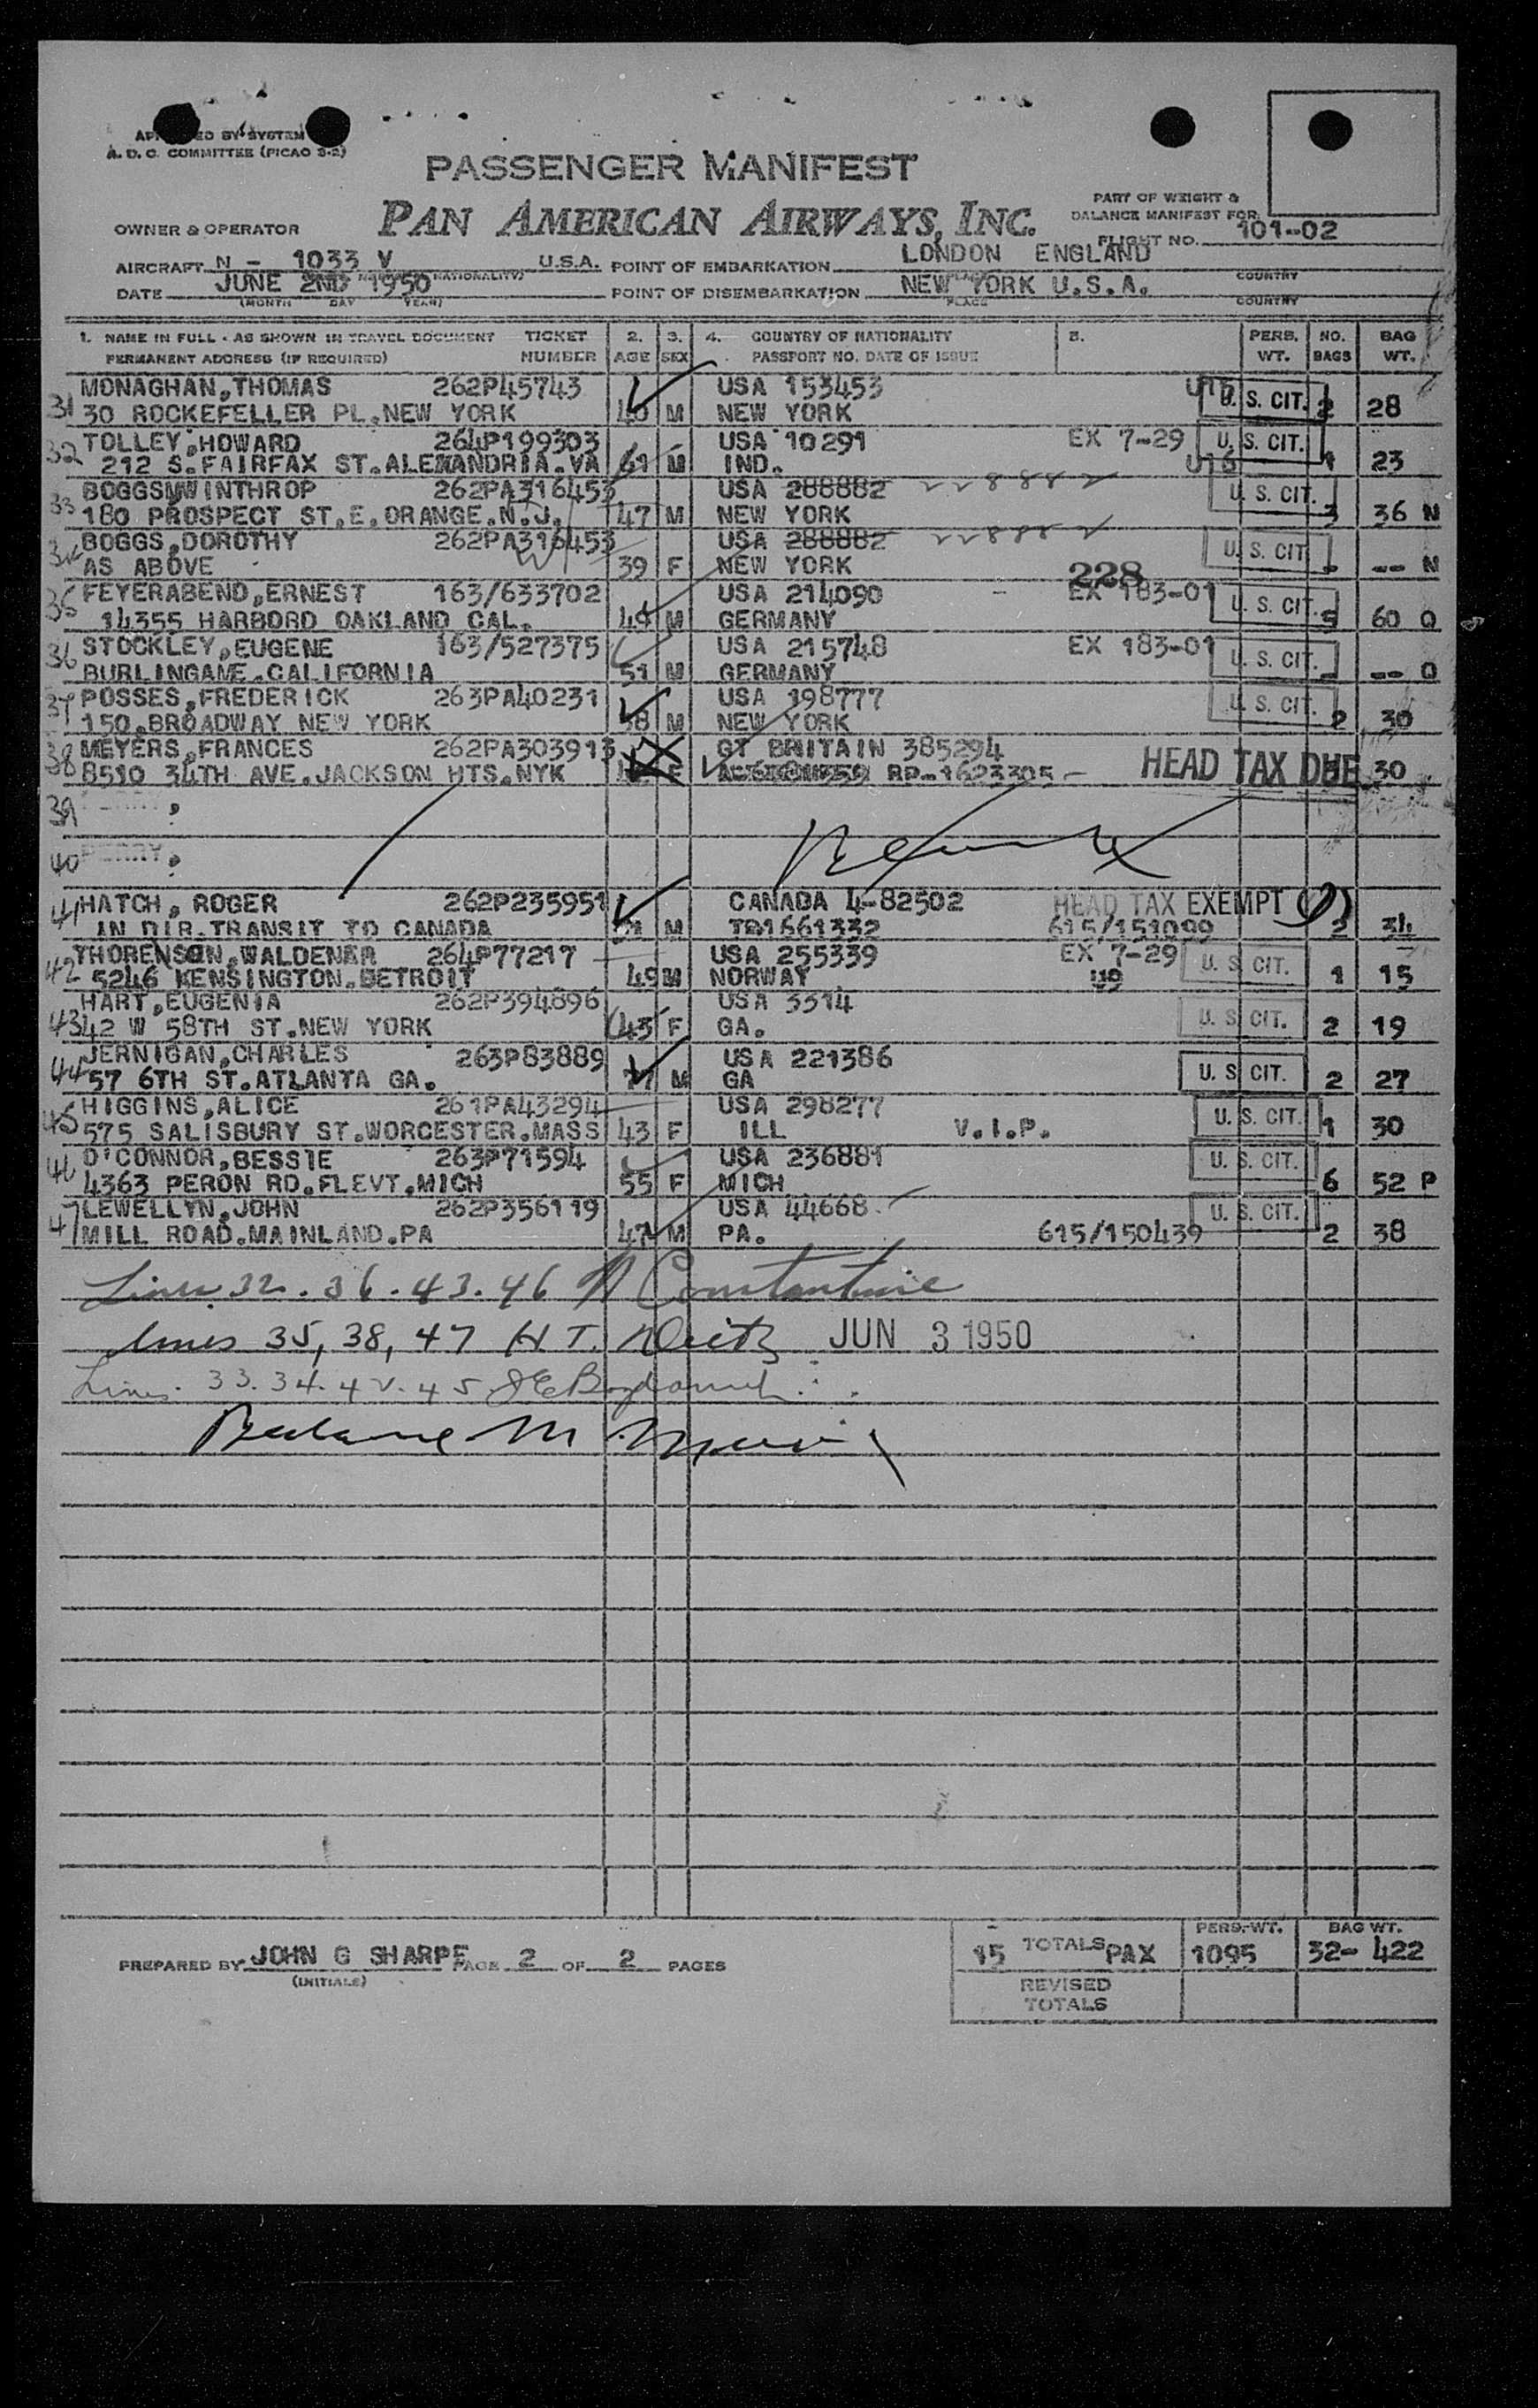 APPROVED BY SYSTEM
A. D. C. COMMITTEE (PICAO 3-2)
PASSENGER MANIFEST
PAN AMERICAN AIRWAYS, INC.
PART OF WEIGHT &
BALANCE MANIFEST FOR
FLIGHT NO. 101-02
OWNER & OPERATOR
AIRCRAFT N - 1033 V U.S.A. POINT OF EMBARKATION LONDON ENGLAND
(NATIONALITY) PLACE COUNTRY
DATE JUNE 2ND 1950 POINT OF DISEMBARKATION NEW YORK U.S.A.
(MONTH DAY YEAR) PLACE COUNTRY
1. NAME IN FULL - AS SHOWN IN TRAVEL DOCUMENT TICKET 2. 3. 4. COUNTRY OF NATIONALITY 5. PERS. NO. BAG
PERMANENT ADDRESS (IF REQUIRED) NUMBER AGE SEX PASSPORT NO. DATE OF ISSUE WT. BAGS WT.
31 MONAGHAN,THOMAS 262P45743 USA 153453 U16 U. S. CIT.
30 ROCKEFELLER PL.NEW YORK 40 M NEW YORK 2 28
32 TOLLEY,HOWARD 264P199303 USA 10291 EX 7-29 U. S. CIT.
212 S.FAIRFAX ST.ALEXANDRIA.VA 61 M IND. U16 1 23
33 BOGGS,WINTHROP 262PA316453 USA 288882 228882 U. S. CIT.
180 PROSPECT ST.E.ORANGE.N.J. 47 M NEW YORK 3 36 N
34 BOGGS,DOROTHY 262PA316453 USA 288882 228882 U. S. CIT
AS ABOVE 39 F NEW YORK - -- N
228
35 FEYERABEND,ERNEST 163/633702 USA 214090 - EX 183-01 U. S. CIT.
14355 HARBORD OAKLAND CAL. 49 M GERMANY 5 60 Q
36 STOCKLEY,EUGENE 163/527375 USA 215748 EX 183-01 U. S. CIT.
BURLINGAME.CALIFORNIA 51 M GERMANY - -- Q
37 POSSES,FREDERICK 263PA40231 USA 198777 U. S. CIT.
150.BROADWAY NEW YORK 58 M NEW YORK 2 30
38 MEYERS,FRANCES 262PA303913 GT BRITAIN 385294
8510 34TH AVE.JACKSON HTS.NYK F RP-1623305 HEAD TAX DUE 30
39
40 PERRY,
41 HATCH, ROGER 262P235951 CANADA 4-82502 HEAD TAX EXEMPT
IN DIR.TRANSIT TO CANADA M TR1661332 615/151099 2 34
42 THORENSON,WALDEMAR 264P77217 USA 255339 EX 7-29 U. S. CIT.
5246 KENSINGTON.DETROIT 49 M NORWAY U9 1 15
43 HART,EUGENIA 262P394896 USA 3314 U. S. CIT.
42 W 58TH ST.NEW YORK 43 F GA. 2 19
44 JERNIGAN,CHARLES 263P83889 USA 221386 U. S. CIT.
57 6TH ST.ATLANTA GA. M GA 2 27
45 HIGGINS,ALICE 261PA43294 USA 298277 U. S. CIT.
575 SALISBURY ST.WORCESTER.MASS 43 F ILL V.I.P. 1 30
46 O'CONNOR,BESSIE 263P71594 USA 236881 U. S. CIT.
4363 PERON RD.FLEVT.MICH 55 F MICH 6 52 P
47 LEWELLYN,JOHN 262P356119 USA 44668 U. S. CIT.
MILL ROAD.MAINLAND.PA 47 M PA. 615/150439 2 38
Lines 32. 36. 43. 46 Constantine
lines 35, 38, 47 H T. JUN 3 1950
Lines. 33. 34. 42. 45
PREPARED BY JOHN G SHARPE PAGE 2 OF 2 PAGES
(INITIALS)
15 TOTALS PAX PERS. WT. 1095 BAG WT. 32- 422
REVISED
TOTALS